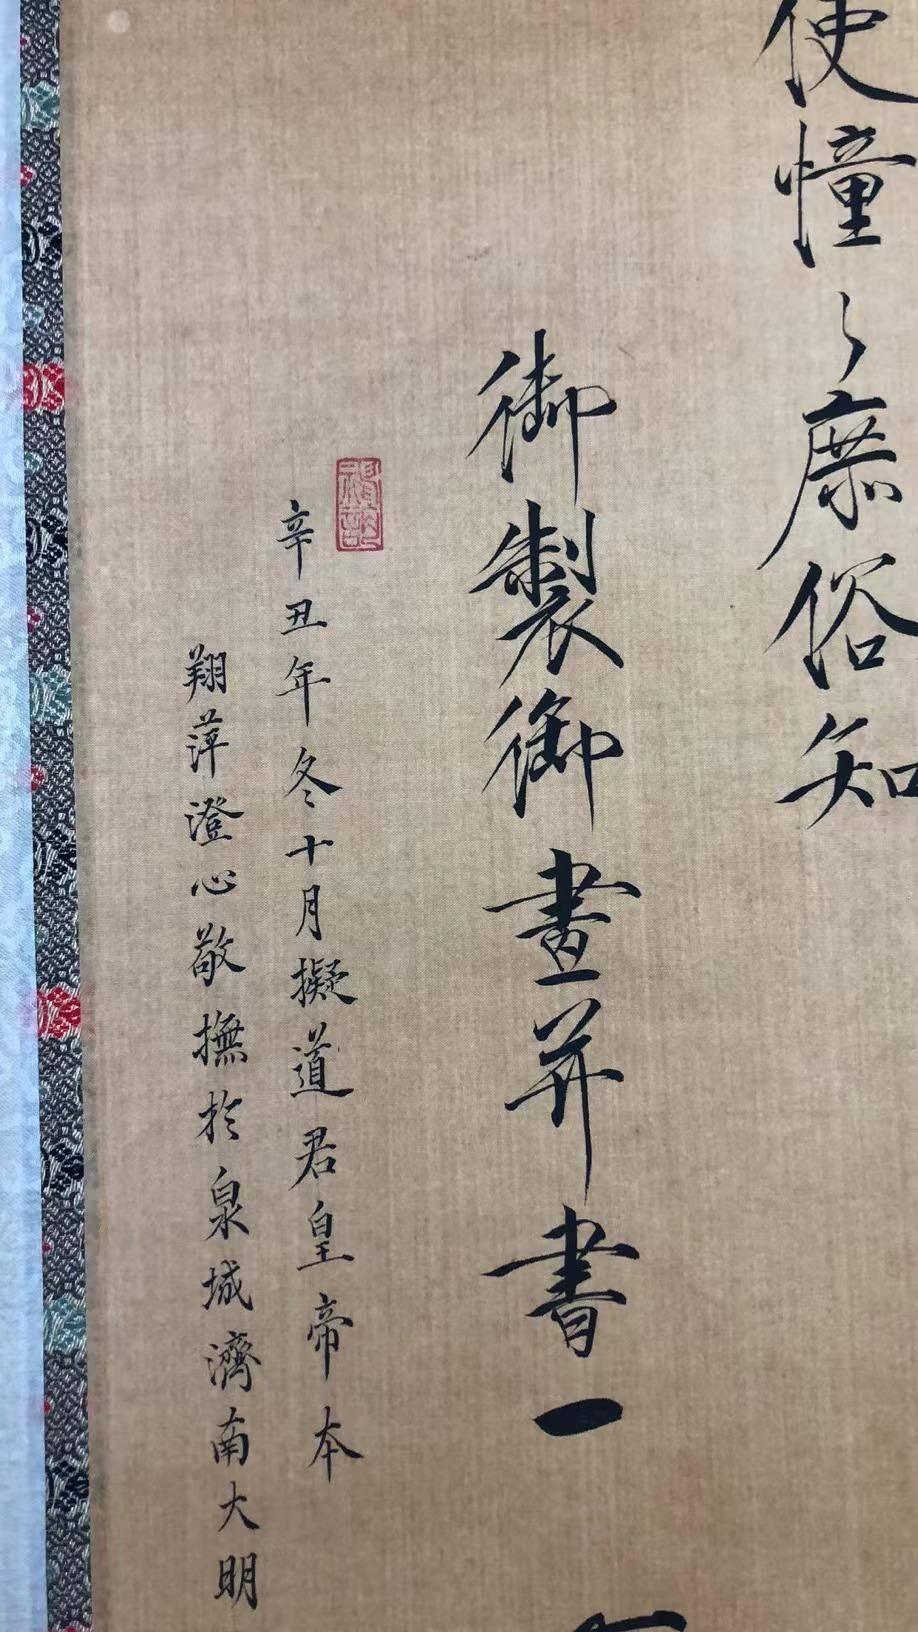 使憧〻庶俗知
御製御畫并書一
辛丑年冬十月擬道君皇帝本
翔萍澄心敬撫於泉城濟南大明